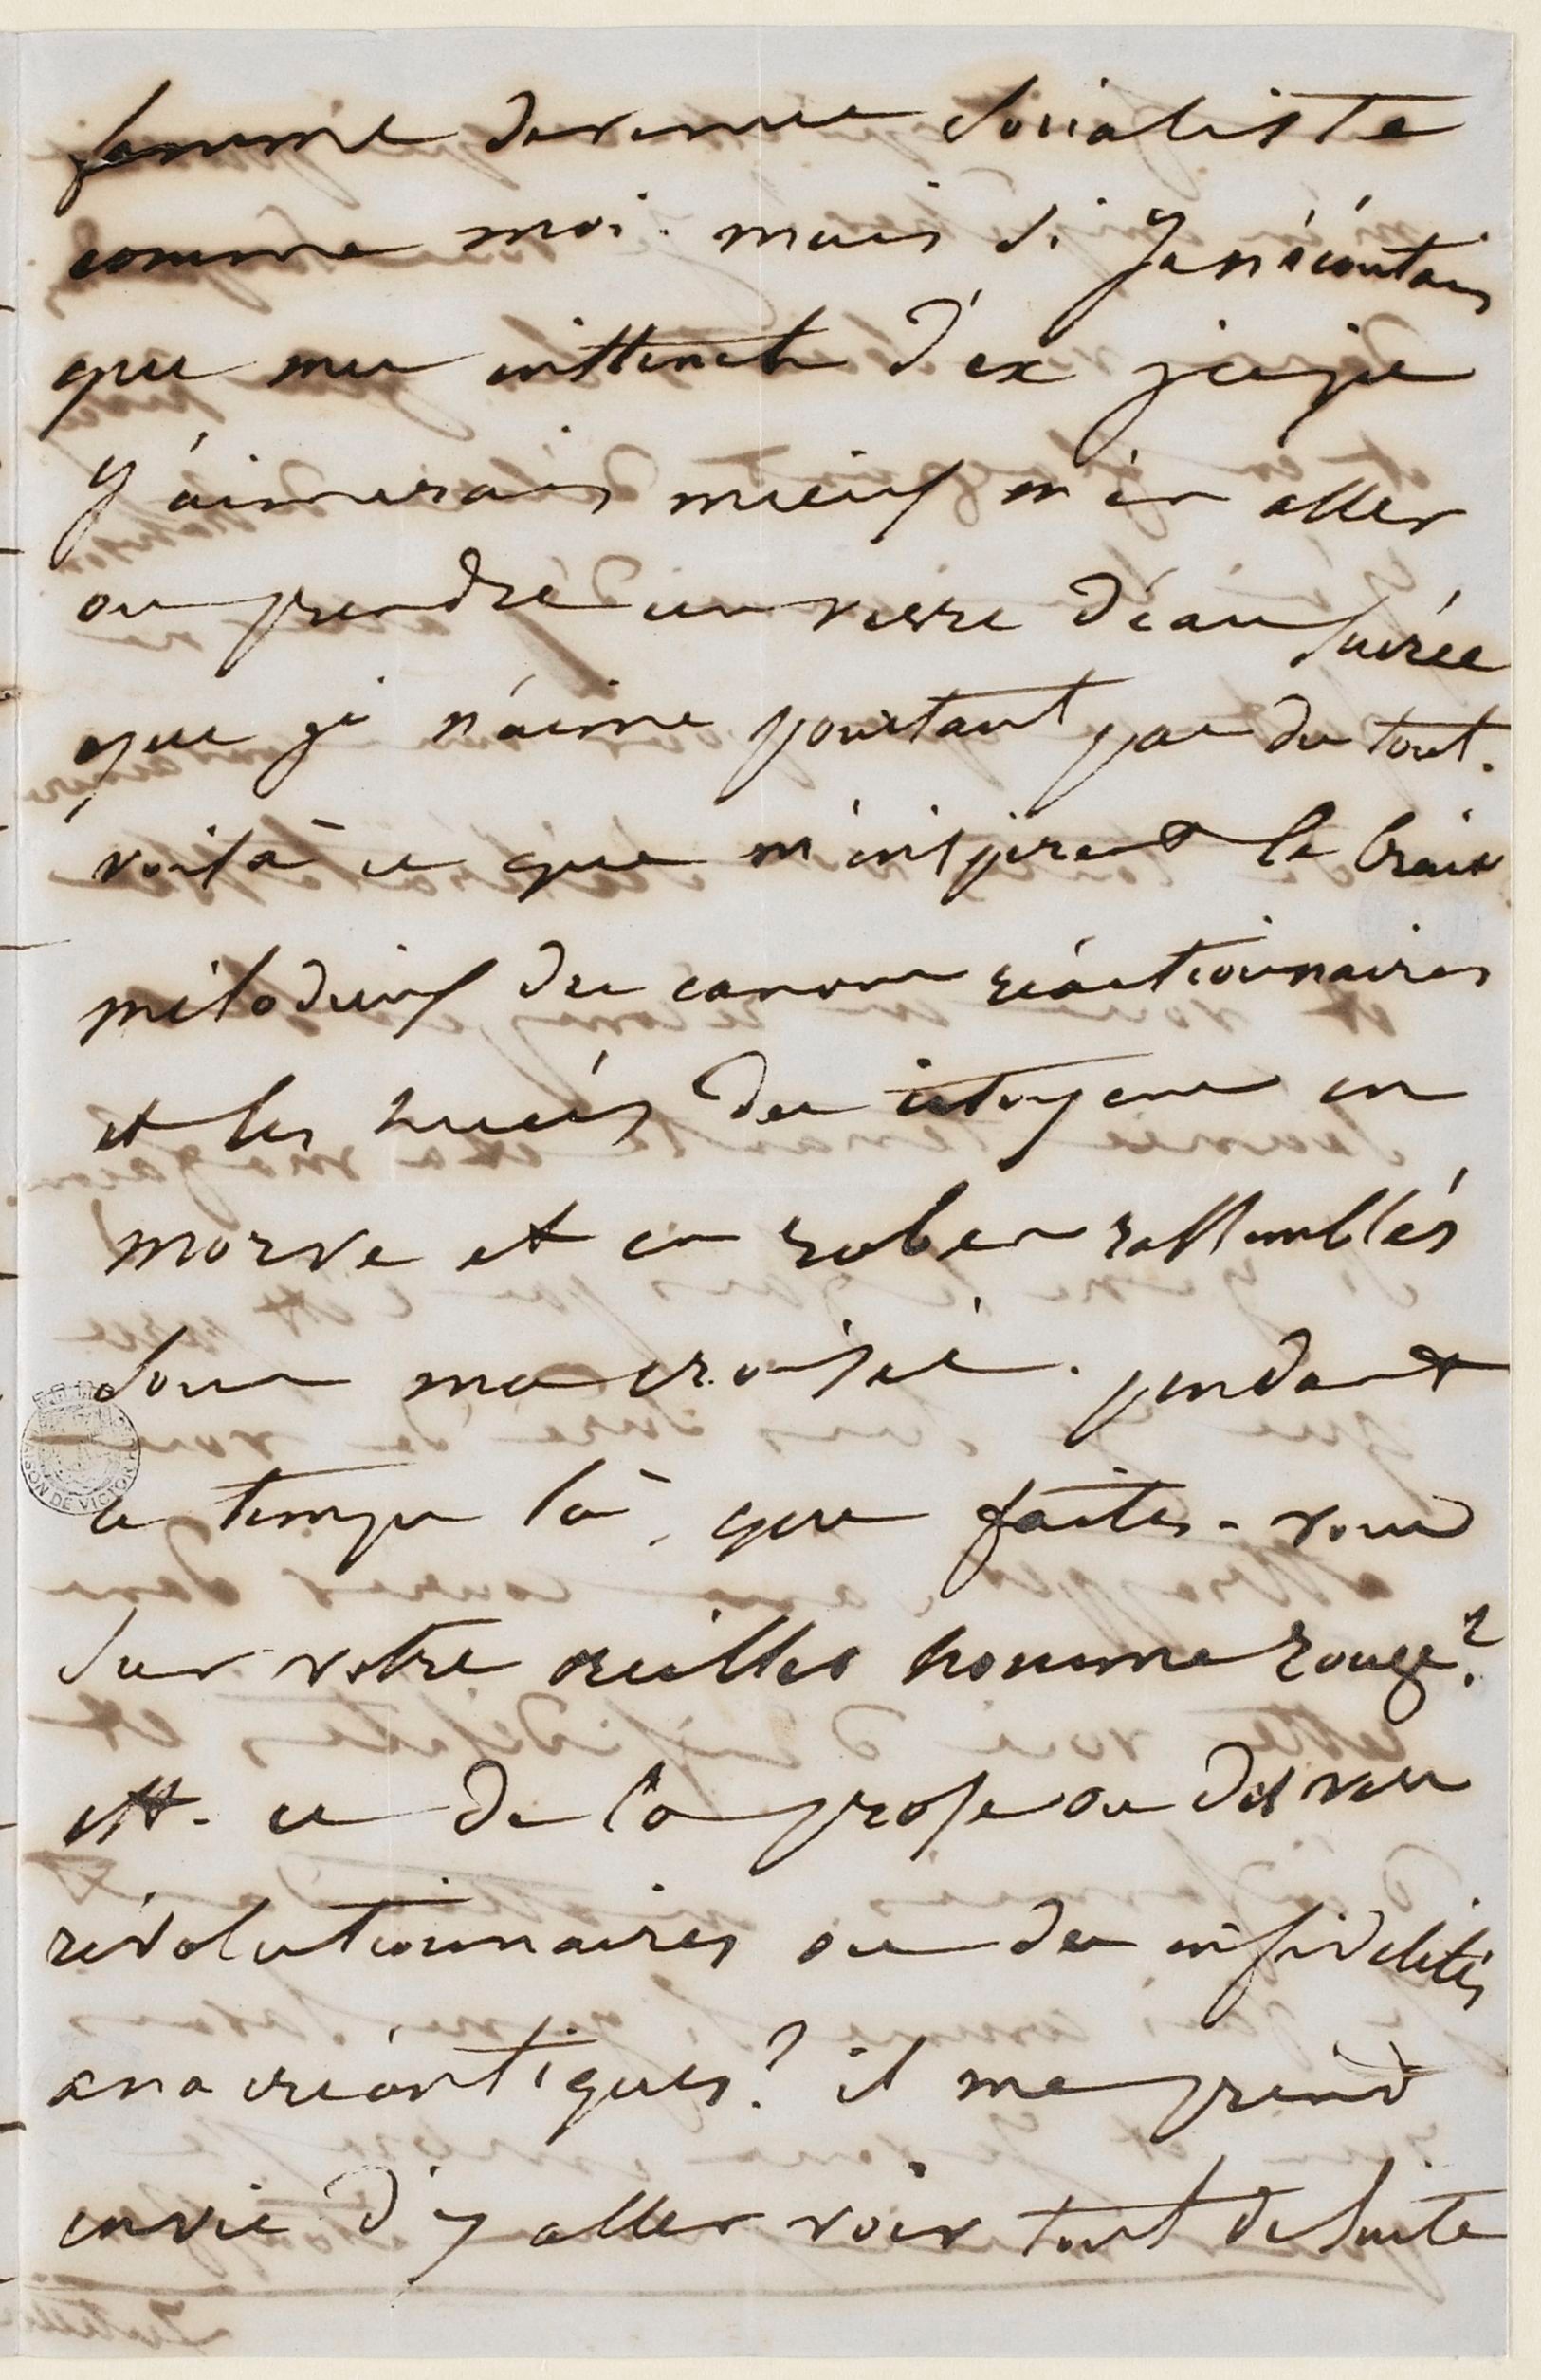 femme devenue socialiste
comme moi. mais si je n'écoutais
que mes instincts d'ex
j'aimerais mieux m'en aller
ou prendre un verre d'eau sucrée
que je n'aime pourtant pas du tout.
voilà ce que m'inspirent le bruit
mélodieux des canons réactionnaires
et les huées des citoyens en
morve et en robes rassemblés
sous ma croisée. pendant
ce temps là, que faites-vous
sur votre oreiller homme rouge?
est-ce de la prose ou des vers
révolutionnaires ou des infidelités
anacréontiques? il me prend
envie d'y aller voir tout de suite
MAISON DE VICTOR